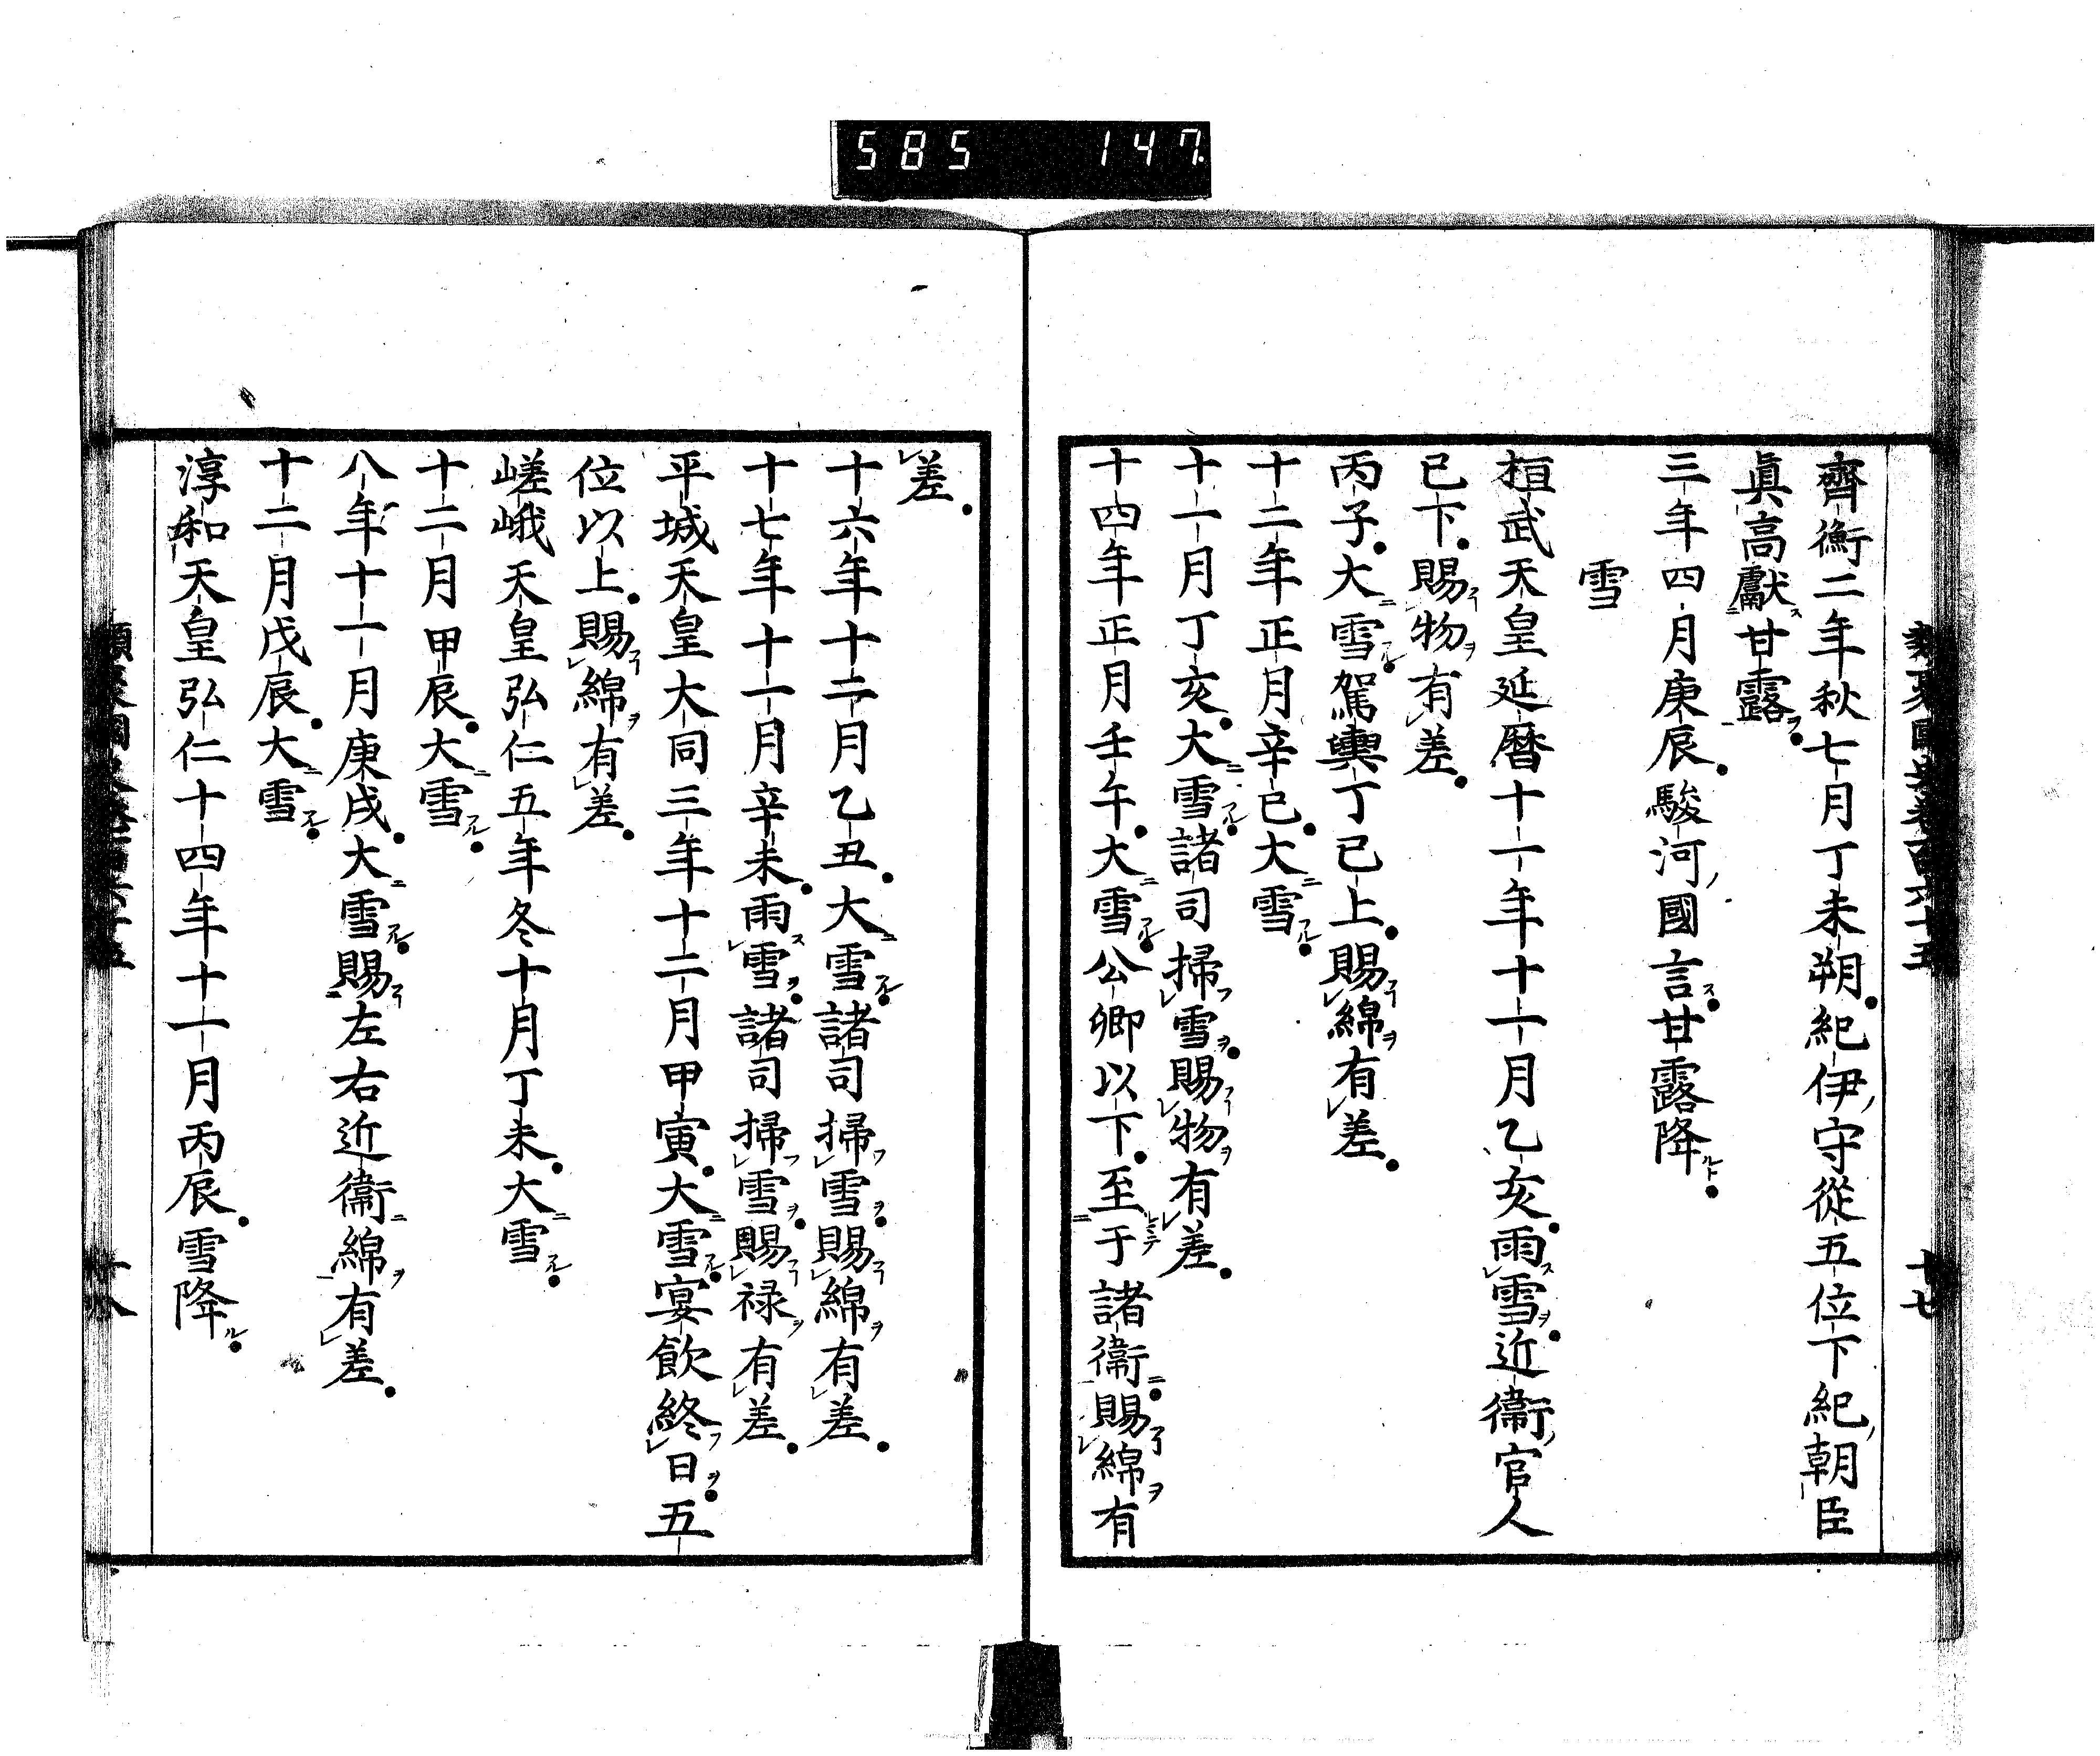 585 147
齊衡二年秋七月丁未朔紀伊守從五位下紀朝臣
眞高獻甘露
三年四月庚辰駿河國言甘露降
雪
桓武天皇延暦十一年十一月乙亥雨雪近衞官人
已下賜物有差
丙子大雪駕輿丁已上賜綿有差
十二年正月辛巳大雪
十一月丁亥大雪諸司掃雪賜物有差
十四年正月壬午大雪公卿以下至于諸衞賜綿有
差
十六年十二月乙丑大雪諸司掃雪賜綿有差
十七年十一月辛未雨雪諸司掃雪賜禄有差
平城天皇大同三年十二月甲寅大雪宴飮終日五
位以上賜綿有差
嵯峨天皇弘仁五年冬十月丁未大雪
十二月甲辰大雪
八年十一月庚戌大雪賜左右近衞綿有差
十二月戊辰大雪
淳和天皇弘仁十四年十一月丙辰雪降